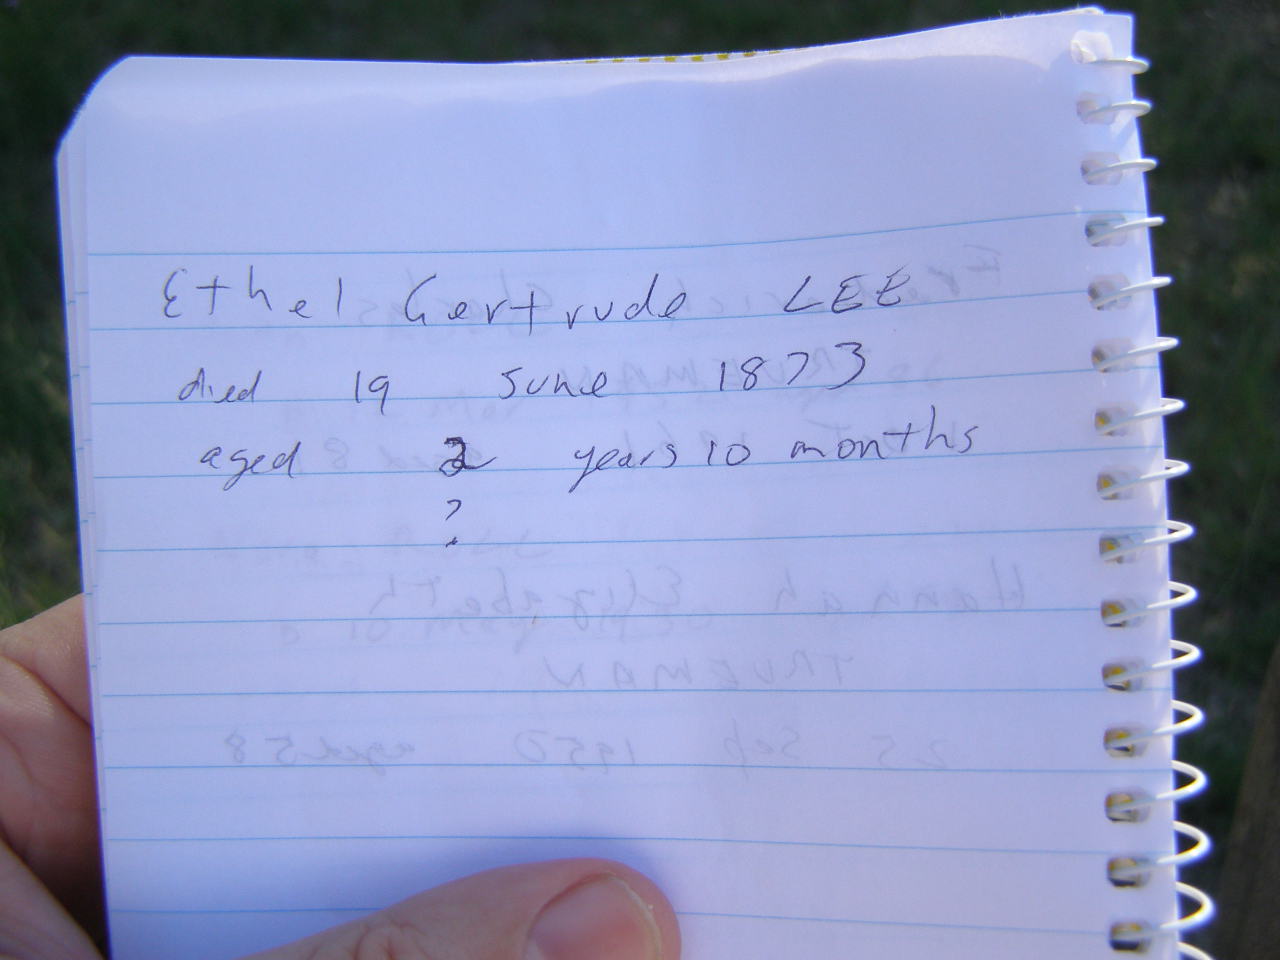 Ethel Gertrude LEE
died 19 June 1873
aged 2 years 10 months
?